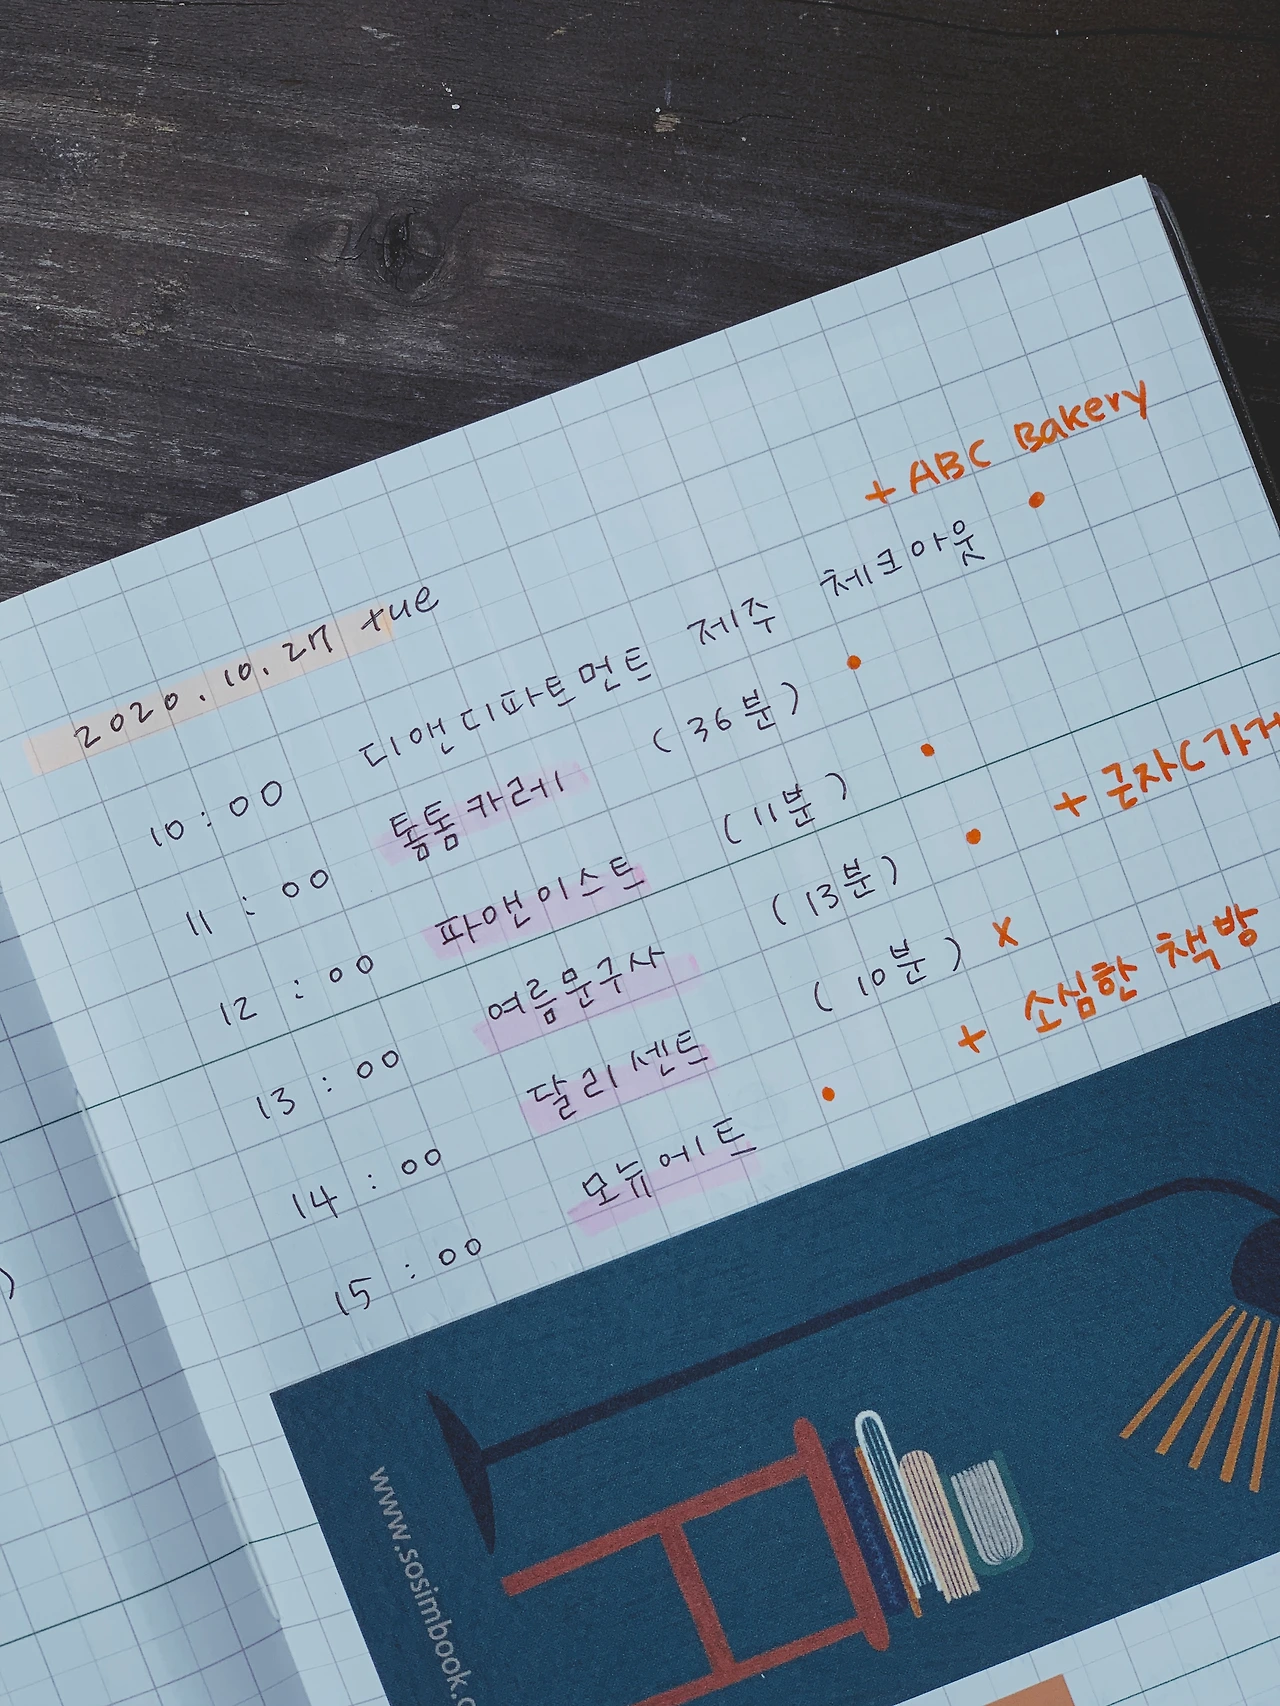 + ABC Bakery
2020.10.27 tue
10:00 디앤디파트먼트 제주 체크아웃 •
11:00 톰톰카레 (36분) •
12:00 파앤이스트 (11분) •
13:00 여름문구사 (13분) • + 근자C가게
14:00 달리센트 (10분) x
15:00 모뉴에트 • + 소심한 책방
www.sosimbook.c
)